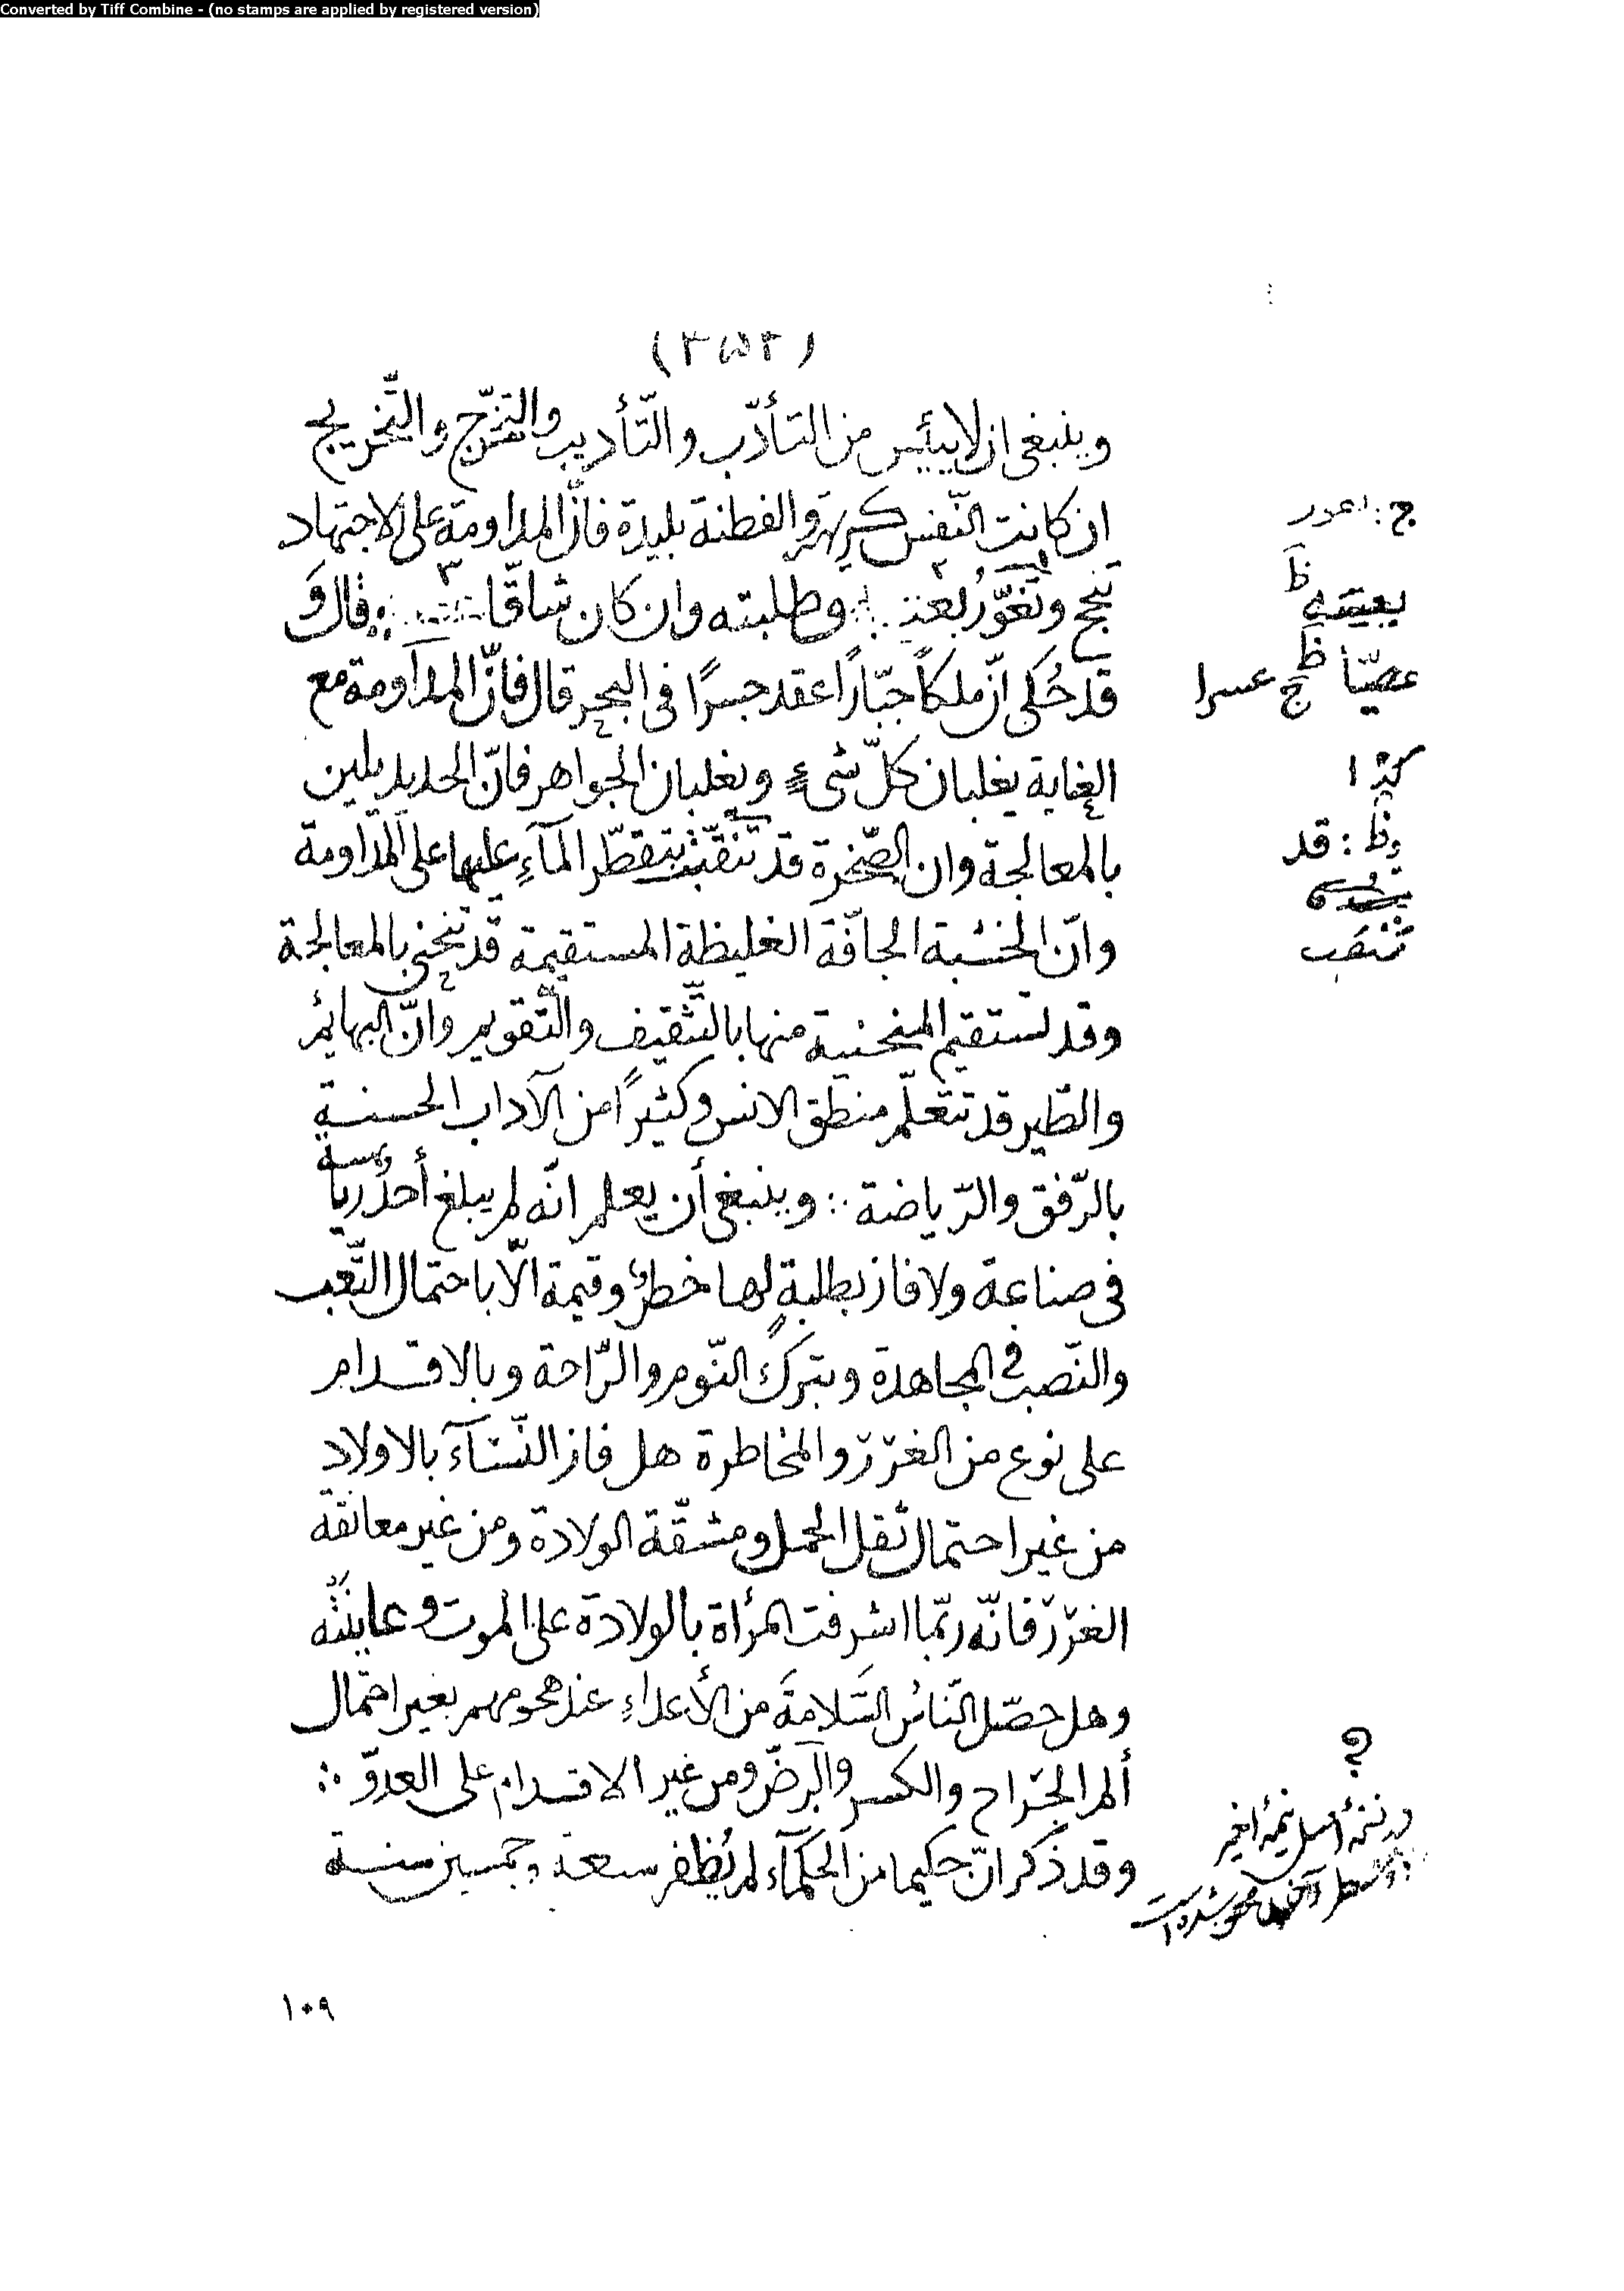 Converted by Tiff Combine - (no stamps are applied by registered version)
(٣٥٢)
وينبغي ان لا ييئس من التأدّب والتّأديب والتخرّج والتّخريج
ج:
ان كانت النّفس كريهة والفطنة بليدة فانّ المداومة على الاجتهاد
تنجح وطلبته وان كان شاقّا قال وَ
قد حُكى انّ ملكاً جبّاراً عقد جسرًا في البحر قال فانّ المداومة مع
عصيّا ظ ج عسرا
الغاية يغلبان كلّ شيءٍ ويغلبان الجواهر فانّ الحديد يلين
بالمعالجة وان الصّخرة قد تنقّبت بتقطّر المآءِ عليها على المداومة
ظ: قد
وانّ الخشبة الجافّة الغليظة المستقيمة قد تنحني بالمعالجة
تنثقب
وقد تستقيم المنحنية منها بالتّثقيف والتّقويم وانّ البهائم
والطّير قد تتعلّم منطق الانس وكثيرًا من الآداب الحسنة
بالرّفق والرّياضة ؞ وينبغي أن يعلم انّه لم يبلغ أحدٌ رياسة
في صناعة ولا فاز بطلبةٍ لها خطرٌ وقيمة الّا باحتمال التّعب
والنّصب في المجاهدة وبترك النّوم والرّاحة وبالاقدام
على نوع من الغرر والمخاطرة هل فاز النّسآء بالاولاد
من غير احتمال ثقل الحمل ومشقّة الولادة ومن غير معانقة
الغرر فانّه ربّما اشرفت المرأة بالولادة على الموت وعاينته
وهل حصّل النّاسُ السّلامةَ من الأعداءِ عند هجومهم بغير احتمال
ألم الجراح والكسر والرضّ ومن غير الاقدام على العدوّ ؞
؟
وقد ذكر انّ حكيما من الحكمآء لم يُظفر سبعة وخمسين سنة
١٠٩